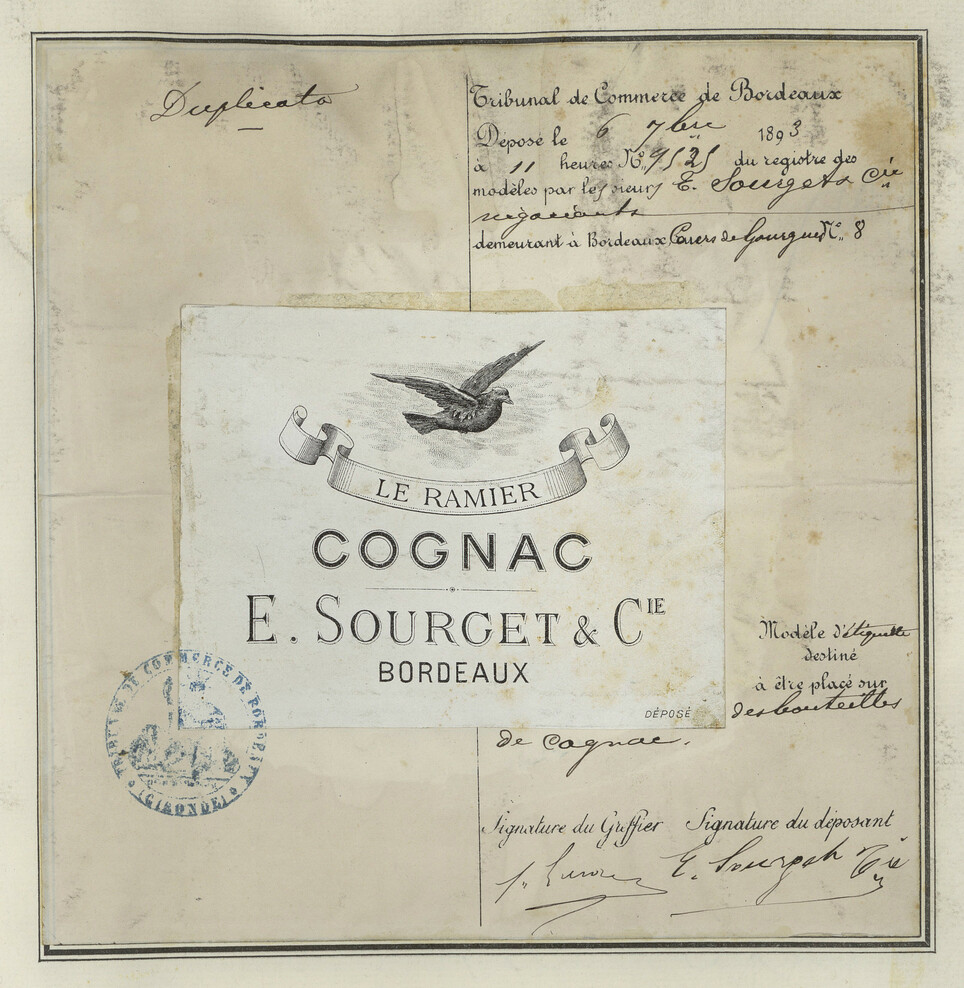 Duplicata
Tribunal de Commerce de Bordeaux
Déposé le 6 7bre 1893
à 11 heures No. 9525 du registre des
modèles par les sieurs E. Sourget & Cie
négociants
demeurant à Bordeaux, Cours de Gourgues No. 8
LE RAMIER
COGNAC
E. SOURGET & CIE
BORDEAUX
DÉPOSÉ
Modèle d'étiquette
destiné
à être placé sur
des bouteilles
de cognac.
TRIBUNAL DE COMMERCE DE BORDEAUX
(GIRONDE)
Signature du Greffier Signature du déposant
E. Sourget & Cie